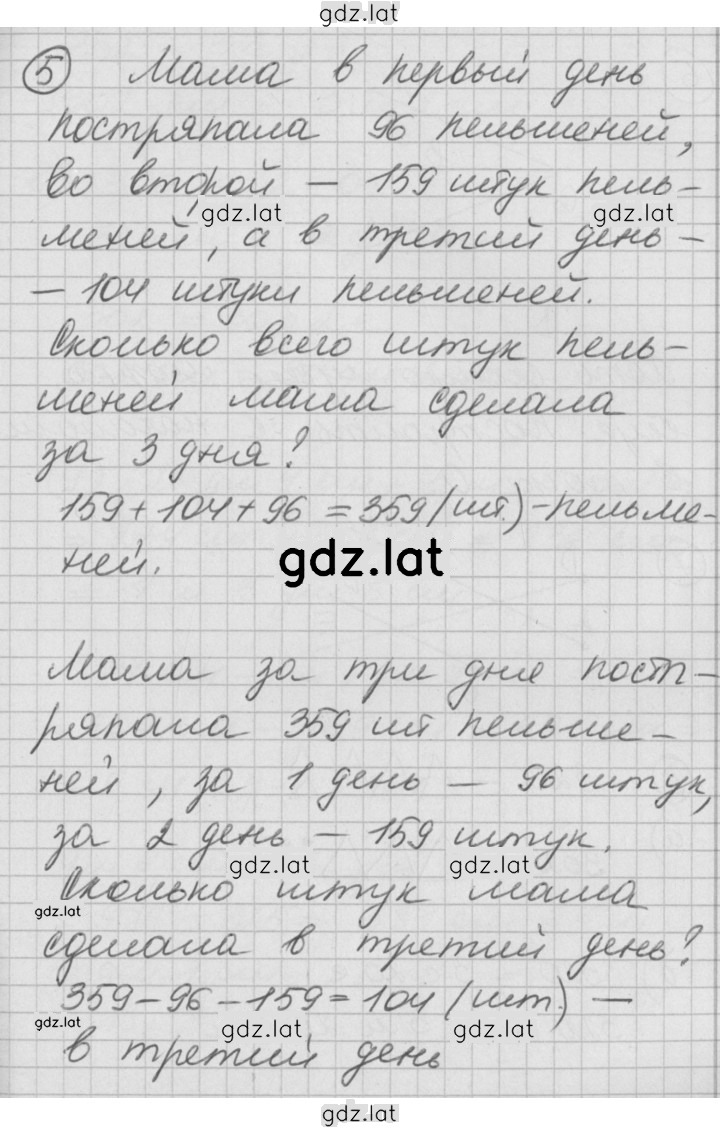 gdz.lat
5 Мама в первый день
постряпала 96 пельменей,
во второй - 159 штук пель-
gdz.lat gdz.lat
меней, а в третий день -
- 104 штуки пельменей.
Сколько всего штук пель-
меней мама сделала
за 3 дня?
159 + 104 + 96 = 359 (шт.) - пельме-
ней.
gdz.lat
Мама за три дня пост-
ряпала 359 шт пельме-
ней, за 1 день - 96 штук,
за 2 день - 159 штук.
gdz.lat gdz.lat
Сколько штук мама
gdz.lat
сделала в третий день?
359 - 96 - 159 = 104 (шт.) -
gdz.lat gdz.lat gdz.lat
в третий день
gdz.lat